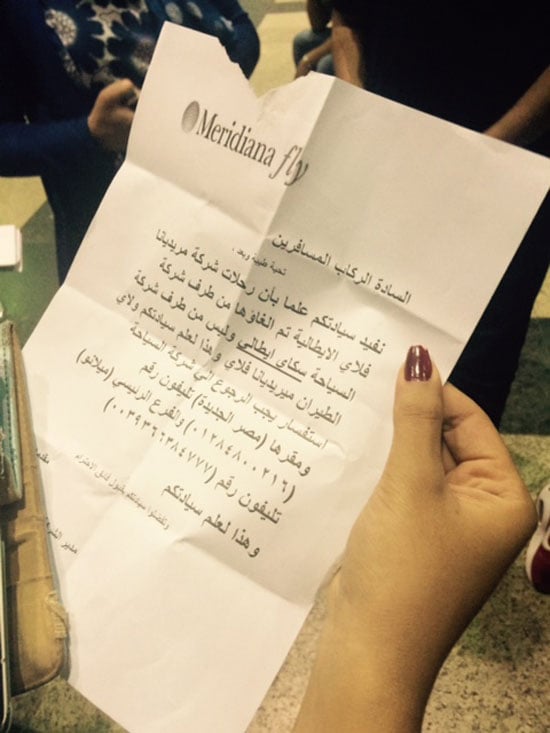 Meridiana fly
السادة الركاب المسافرين
تحية طيبة وبعد ،
نفيد سيادتكم علما بأن رحلات شركة مريديانا
فلاي الايطالية تم الغاؤها من طرف شركة
السياحة سكاى ايطالي وليس من طرف شركة
الطيران ميريديانا فلاي وهذا لعلم سيادتكم ولاي
استفسار يجب الرجوع الي شركة السياحة
ومقرها (مصر الجديدة) تليفون رقم
(٠١٢٨٤٨٠٠٢١٦) والفرع الرئيسي (ميلانو)
تليفون رقم (٠٠٣٩٣٦٦٣٨٤٧٧٧)
وهذا لعلم سيادتكم
وتفضلوا سيادتكم بقبول فائق الاحترام
مدير